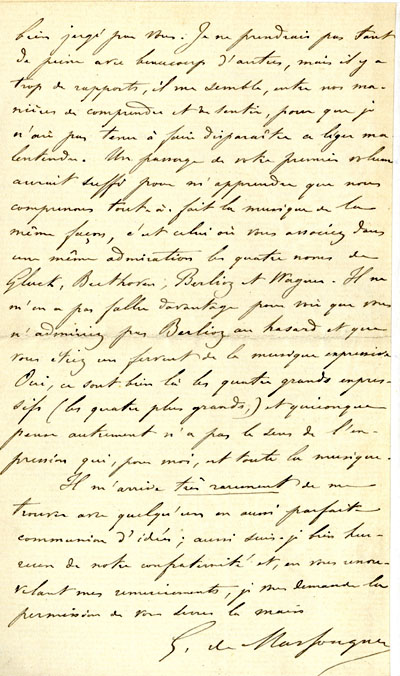 bien jugé par vous. Je ne prendrais pas tant
de peine avec beaucoup d'autres, mais il y a
trop de rapports, il me semble, entre nos ma-
nières de comprendre et de sentir, pour que je
n'aie pas tenu à faire disparaître ce léger ma-
lentendu. Un passage de votre premier volume
aurait suffi pour m'apprendre que nous
comprenons tout-à-fait la musique de la
même façon, c'est celui où vous associez dans
une même admiration les quatre noms de
Gluck, Beethoven, Berlioz et Wagner. Il ne
m'en a pas fallu davantage pour voir que vous
n'admiriez pas Berlioz au hasard et que
vous étiez un fervent de la musique expressive
Oui, ce sont bien là les quatre grands expres-
sifs (les quatre plus grands,) et quiconque
pense autrement n'a pas le sens de l'ex-
pression qui, pour moi, est toute la musique.
Il m'arrive très rarement de me
trouver avec quelqu'un en aussi parfaite
communion d'idées; aussi suis-je bien heu-
reux de notre confraternité et, en vous renou-
velant mes remerciements, je vous demande la
permission de vous serrer la main
G. de Massougnes